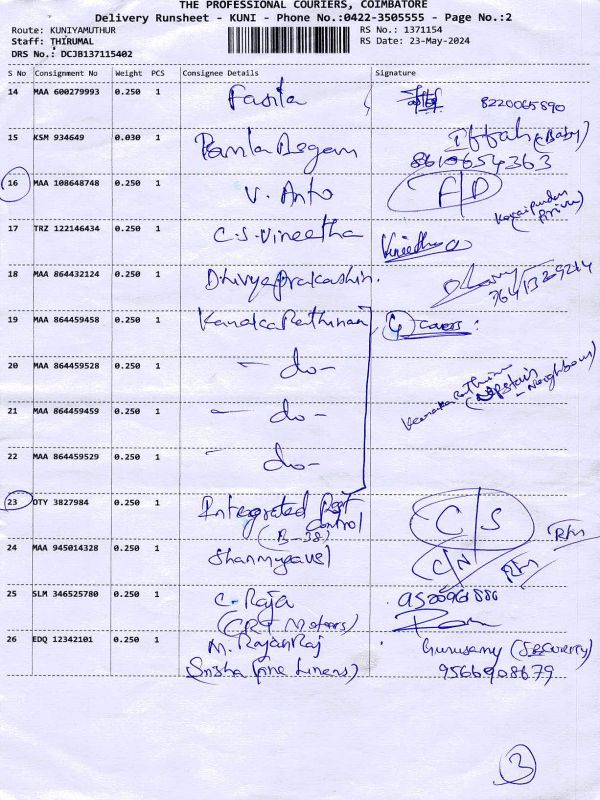 THE PROFESSIONAL COURIERS, COIMBATORE
Delivery Runsheet - KUNI - Phone No.:0422-3505555 - Page No.:2
Route: KUNIYAMUTHUR RS No.: 1371154
Staff: THIRUMAL RS Date: 23-May-2024
DRS No.: DCJB137115402
S No Consignment No Weight PCS Consignee Details Signature
14 MAA 600279993 0.250 1 Fasila 8220065890
15 KSM 934649 0.030 1 Begam Iffah (Baby)
8610654363
16 MAA 108648748 0.250 1 V. Anto F/D
17 TRZ 122146434 0.250 1 C.S.Vineetha Vineetha
18 MAA 864432124 0.250 1 Dhivyaprakashin.
19 MAA 864459458 0.250 1 KanakaRathinam 4 covers:
20 MAA 864459528 0.250 1 - do -
KanakaRathinam
(Upstair
- Neighbour)
21 MAA 864459459 0.250 1 - do -
22 MAA 864459529 0.250 1 - do -
23 DTY 3827984 0.250 1 Integrated Pest C/S
Control
(B-38) Rtn
24 MAA 945014328 0.250 1 Shanmugavel C/N Rtn
25 SLM 346525780 0.250 1 C. Raja
(CRP Motors)
26 EDQ 12342101 0.250 1 M. RajanRaj Gurusamy (Security)
(Fine Linens) 9566908679
3